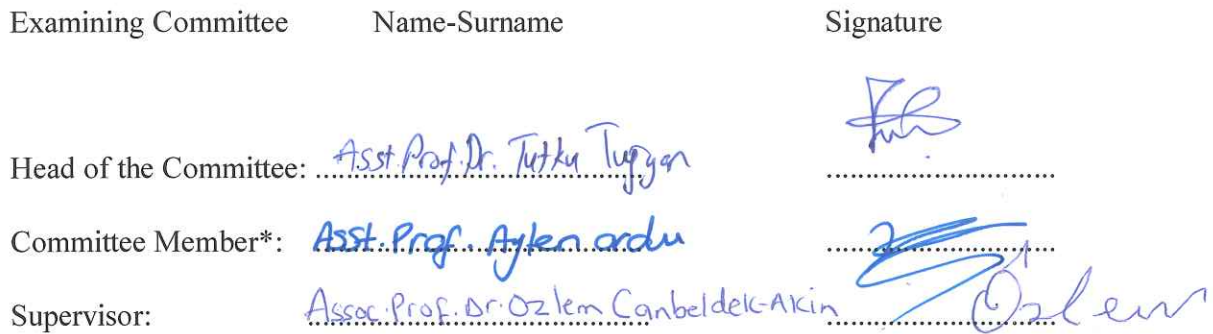 Examining Committee Name-Surname Signature
Head of the Committee: Asst.Prof.Dr. Tutku Tugyan
Committee Member*: Asst. Prof. Ayten ordu
Supervisor: Assoc.Prof.Dr.Ozlem Canbeldek-Akin Özlem